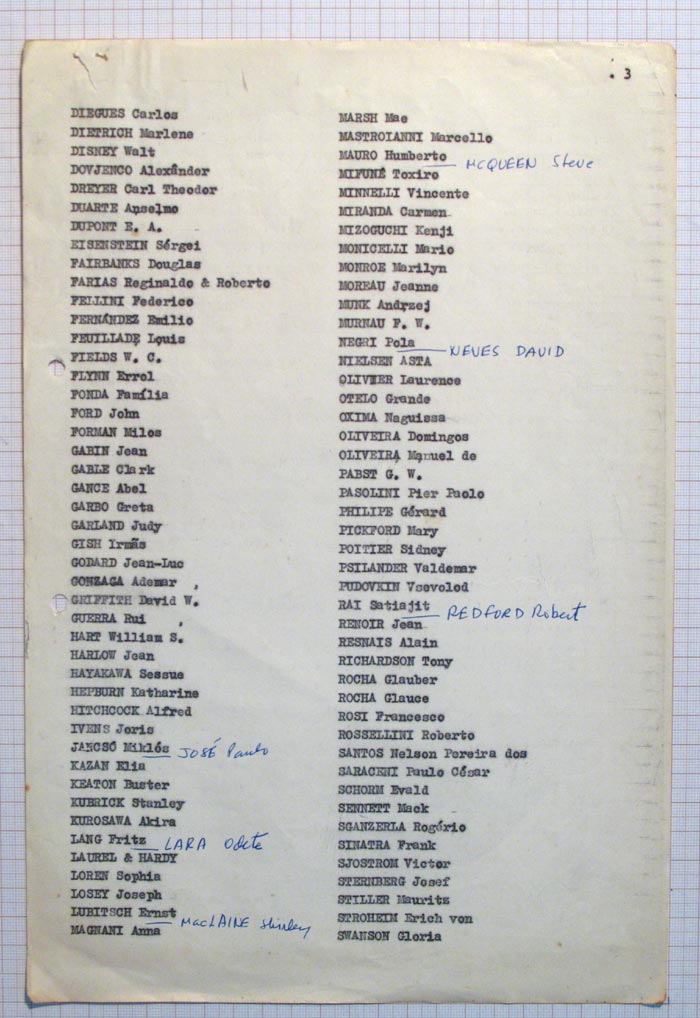 . 3
DIEGUES Carlos
DIETRICH Marlene
DISNEY Walt
DOVJENCO Alexânder
DREYER Carl Theodor
DUARTE Anselmo
DUPONT E. A.
EISENSTEIN Sérgei
FAIRBANKS Douglas
FARIAS Reginaldo & Roberto
FELLINI Federico
FERNÁNDEZ Emilio
FEUILLADE Louis
FIELDS W. C.
FLYNN Errol
FONDA Família
FORD John
FORMAN Milos
GABIN Jean
GABLE Clark
GANCE Abel
GARBO Greta
GARLAND Judy
GISH Irmãs
GODARD Jean-Luc
GONZAGA Ademar
GRIFFITH David W.
GUERRA Rui
HART William S.
HARLOW Jean
HAYAKAWA Sessue
HEPBURN Katharine
HITCHCOCK Alfred
IVENS Joris
JANCSÓ Miklós
JOSÉ Paulo
KAZAN Elia
KEATON Buster
KUBRICK Stanley
KUROSAWA Akira
LANG Fritz
LARA Odete
LAUREL & HARDY
LOREN Sophia
LOSEY Joseph
LUBITSCH Ernst
MacLAINE Shirley
MAGNANI Anna
MARSH Mae
MASTROIANNI Marcello
MAURO Humberto
MCQUEEN Steve
MIFUNÉ Toxiro
MINNELLI Vincente
MIRANDA Carmen
MIZOGUCHI Kenji
MONICELLI Mario
MONROE Marilyn
MOREAU Jeanne
MUNK Andrzej
MURNAU F. W.
NEGRI Pola
NEVES DAVID
NIELSEN ASTA
OLIVIER Laurence
OTELO Grande
OXIMA Naguissa
OLIVEIRA Domingos
OLIVEIRA Manuel de
PABST G. W.
PASOLINI Pier Paolo
PHILIPE Gérard
PICKFORD Mary
POITIER Sidney
PSILANDER Valdemar
PUDOVKIN Vsevolod
RAI Satiajit
REDFORD Robert
RENOIR Jean
RESNAIS Alain
RICHARDSON Tony
ROCHA Glauber
ROCHA Glauce
ROSI Francesco
ROSSELLINI Roberto
SANTOS Nelson Pereira dos
SARACENI Paulo César
SCHORM Evald
SENNETT Mack
SGANZERLA Rogério
SINATRA Frank
SJOSTROM Victor
STERNBERG Josef
STILLER Mauritz
STROHEIM Erich von
SWANSON Gloria